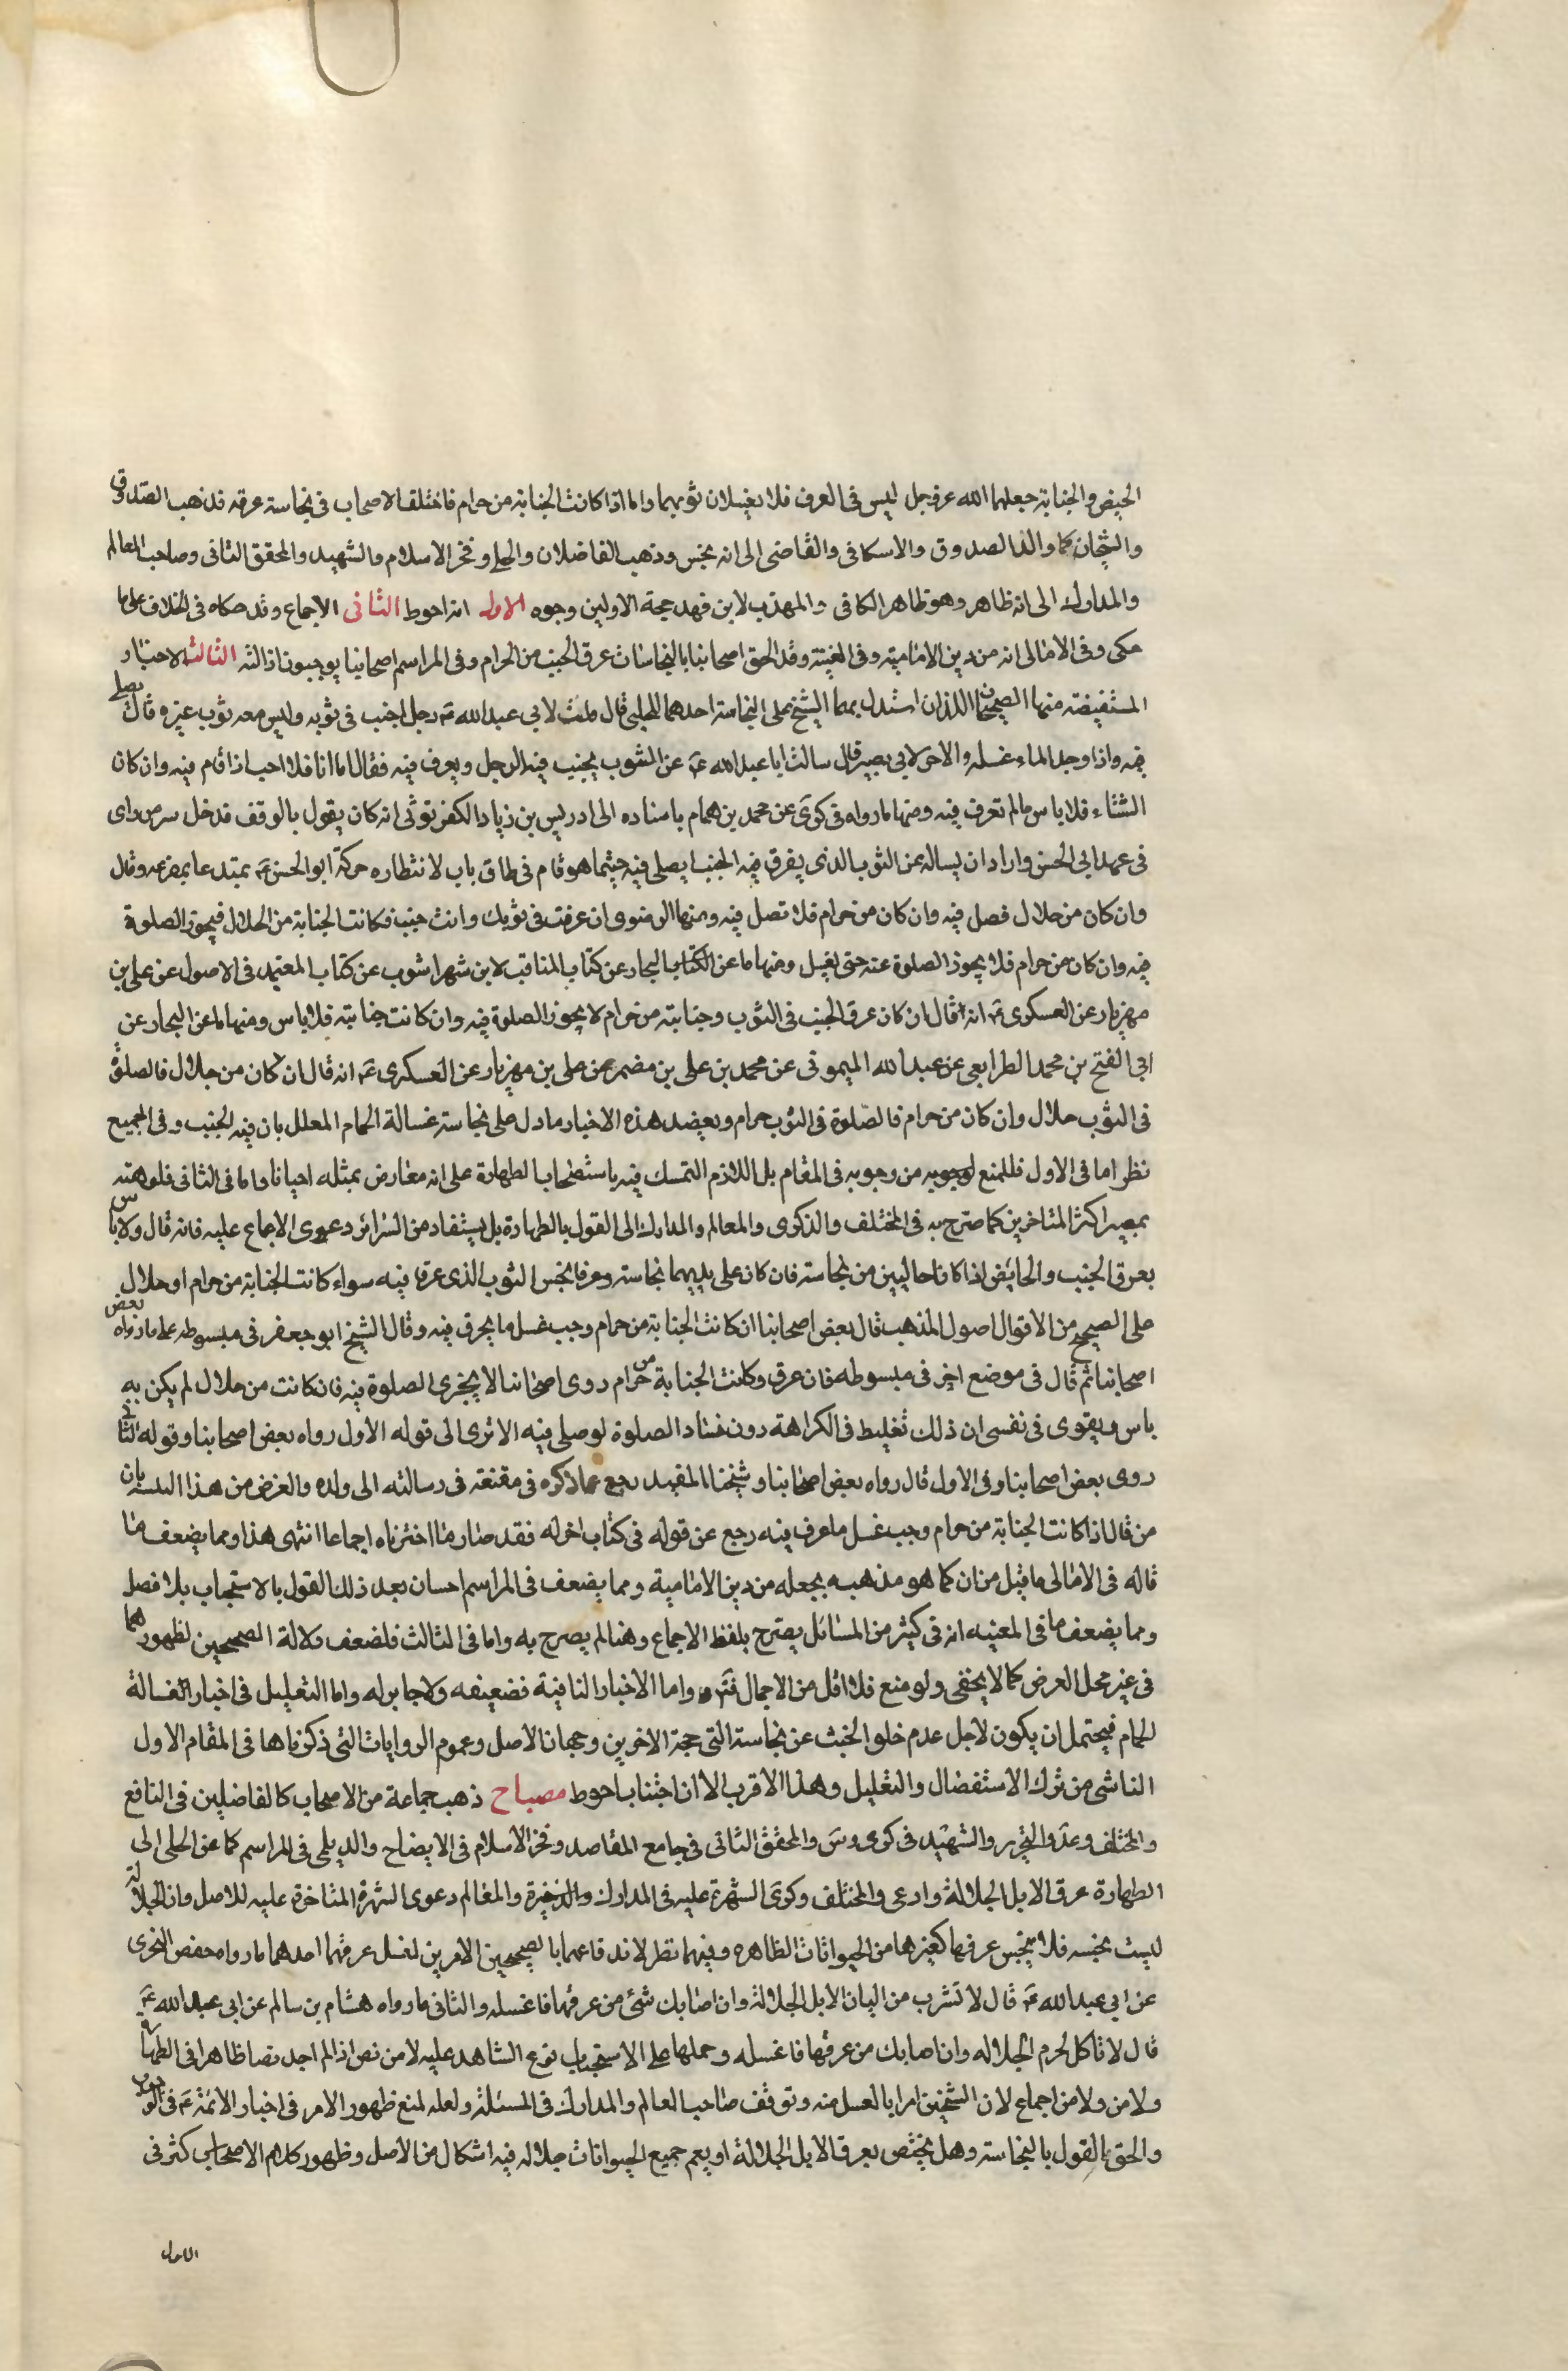 الحيض والجنابة جعلهما الله عز وجل ليس فى العرق فلا يغسلان ثوبهما واما اذا كانت الجنابة من حرام فاختلف الاصحاب فى نجاسة عرقه فذهب الصدوق
والشيخان كما والد الصدوق والاسكافى والقاضى الى انه نجس وذهب الفاضلان والحلى وفخر الاسلام والشهيد والمحقق الثانى وصاحب المعالم
والمدارك الى انه طاهر وهو ظاهر الكافى والمهذب لابن فهد حجة الاولين وجوه الاول انه احوط الثانى الاجماع وقد حكاه فى الخلاف على ما
حكى وفى الامالى انه من دين الامامية وفى الغنية وقد الحق اصحابنا بالنجاسات عرق الجنب من الحرام وفى المراسم اصحابنا يوجبون ازالته الثالث الاخبار
المستفيضة منها الصحيحان اللذان استدل بهما الشيخ على النجاسة احدهما للحلبى قال قلت لابى عبد الله ع رجل اجنب فى ثوبه وليس معه ثوب غيره قال يصلى
فيه واذا وجد الماء غسله والاخر لابى بصير قال سالت ابا عبد الله ع عن الثوب يجنب فيه الرجل ويعرق فيه فقال اما انا فلا احب اذا قام فيه وان كان
الشتاء فلا باس مالم تعرق فيه ومنها مارواه فى كرى عن محمد بن همام باسناده الى ادريس بن زياد الكفرتوثى انه كان يقول بالوقف فدخل سر من راى
فى عهد ابى الحسن واراد ان يساله عن الثوب الذى يعرق فيه الجنب ايصلى فيه حيثما هو قام فى طاق باب لانتظاره حركة ابو الحسن ع بمقرعه وقال
وان كان من حلال فصل فيه وان كان من حرام فلا تصل فيه ومنها الرضوى ان عرقت فى ثوبك وانت جنب فكانت الجنابة من الحلال فيجوز الصلوة
فيه وان كان من حرام فلا يجوز الصلوة عنه حتى يغسل ومنها ما عن الكتاب البحار عن كتاب المناقب لابن شهراشوب عن كتاب المعتمد فى الاصول عن على بن
مهزيار عن العسكرى ع انه قال ان كان عرق الجنب فى الثوب وجنابته من حرام لا يجوز الصلوة فيه وان كانت جنابته فلا باس ومنها ما عن البحار عن
ابى الفتح بن محمد الطرابعى عن عبد الله الميموتى عن محمد بن على بن مضمر عن على بن مهزيار عن العسكرى ع انه قال ان كان من حلال فالصلوة
فى الثوب حلال وان كان من حرام فالصلوة فى الثوب حرام ويعضد هذه الاخبار مادل على نجاسة غسالة الحمام المعلل بان فيه الجنب وفى الجميع
نظر اما فى الاول فللمنع من وجوبه فى المقام بل اللازم التمسك فيه باستصحاب الطهارة على انه معارض بمثله احيانا واما فى الثانى فلوهنه
بمصير اكثر المتاخرين كما صرح به فى المختلف والذكرى والمعالم والمدارك الى القول بالطهارة بل يستفاد من السرائر دعوى الاجماع عليه فانه قال ولا باس
بعرق الجنب والحايض اذا كانا خاليين من نجاسة فان كان على بدنهما نجاسة وعرقا نجس الثوب الذى عرقا فيه سواء كانت الجنابة من حرام او حلال
على الصحيح من الاقوال اصول المذهب قال بعض اصحابنا ان كانت الجنابة من حرام وجب غسل ما يعرق فيه وقال الشيخ ابو جعفر فى مبسوطه على مارواه بعض
اصحابنا ثم قال فى موضع اخر فى مبسوطه فان عرق وكانت الجنابة من حرام روى اصحابنا لا يجزى الصلوة فيه فان كانت من حلال لم يكن به
باس ويقوى فى نفسى ان ذلك تغليظ فى الكراهة دون فساد الصلوة لو صلى فيه الا ترى الى قوله الاول رواه بعض اصحابنا وقوله الثانى
روى بعض اصحابنا وفى الاول قال رواه بعض اصحابنا وشيخنا المفيد رجع عما ذكره فى مقنعته فى رسالته الى ولده والغرض من هذا بان
من قال اذا كانت الجنابة من حرام وجب غسل ما عرق فيه رجع عن قوله فى كتاب اخر له فقد صار ما اخترناه اجماعا انتهى هذا ومما يضعف ما
قاله فى الامالى ما قيل من ان كما هو مذهبه يجعله من دين الامامية ومما يضعف فى المراسم احسان بعد ذلك القول بالاستحباب بلا فصل
ومما يضعف ما فى الغنية انه فى كثير من المسائل يصرح بلفظ الاجماع وهنا لم يصرح به واما فى الثالث فلضعف دلالة الصحيحين لظهورهما
فى غير محل الفرض كما لا يخفى ولو منع فلا اقل من الاجمال واما الاخبار النافية فضعيفه ولا جابر له واما التعليل فى اخبار الغسالة
الحمام فيحتمل ان يكون لاجل عدم خلو الخبث عن نجاسة التى حجة الاخرين رجحان الاصل وعموم الروايات التى ذكرناها فى المقام الاول
الناشى من ترك الاستفصال والتعليل وهذا الاقرب الا ان اجتناب احوط مصباح ذهب جماعة من الاصحاب كالفاضلين فى النافع
والمختلف وعد والتحرير والشهيد فى كرى وس والمحقق الثانى فى جامع المقاصد وفخر الاسلام فى الايضاح والديلمى فى المراسم كما عن الحلى الى
الطهارة عرق الابل الجلالة وادعى والمختلف وكرى الشهرة عليه فى المدارك والذخيرة والمعالم دعوى الشهرة المتاخرة عليه للاصل وان الجلالة
ليست نجسه فلا ينجس عرقها كغيرها من الحيوانات الظاهره وفيهما نظر لاندفاعهما بالصحيحين الامرين لغسل عرقهما احدهما مارواه حفص البخترى
عن ابى عبد الله ع قال لا تشرب من البان الابل الجلالة وان اصابك شئ من عرقها فاغسله والثانى مارواه هشام بن سالم عن ابى عبد الله ع
قال لا تاكل لحرم الجلاله وان اصابك من عرقها فاغسله وحملها على الاستحباب نوع الشاهد عليه لا من نص اذ الم اجد نصا ظاهرا فى الطهارة
ولا من ولا من اجماع لان الشيخين امرا بالغسل منه وتوقف صاحب العالم والمدارك فى المسئلة ولعله لمنع ظهور الامر فى اخبار الائمة ع فى الوجوب
والحق القول بالنجاسة وهل يختص بعرق الابل الجلالة او يعم جميع الحيوانات جلاله فيه اشكال من الاصل وظهور كلام الاصحاب كثر فى
الاول